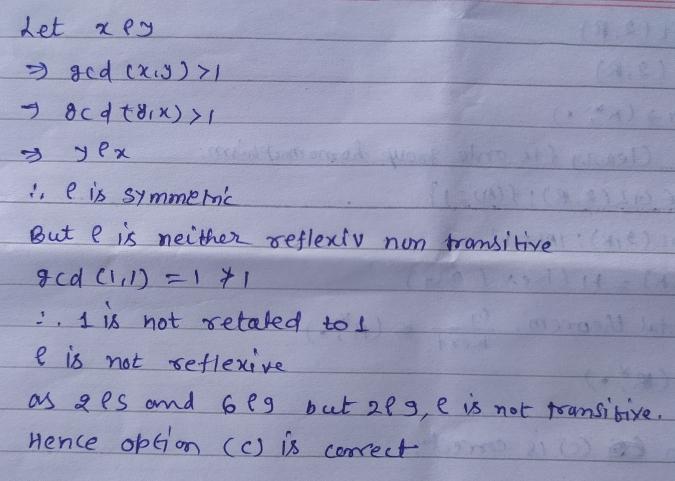 Let x ρ y
⇒ gcd (x,y) >1
⇒ gcd (y,x) >1
⇒ y ρ x
∴ ρ is symmetric
But ρ is neither reflexiv non transitive
gcd (1,1) = 1 ≯ 1
∴ 1 is not retated to 1
ρ is not reflexive
as 2 ρ s and 6 ρ 9 but 2 ρ 9, ρ is not transitive.
Hence option (c) is correct